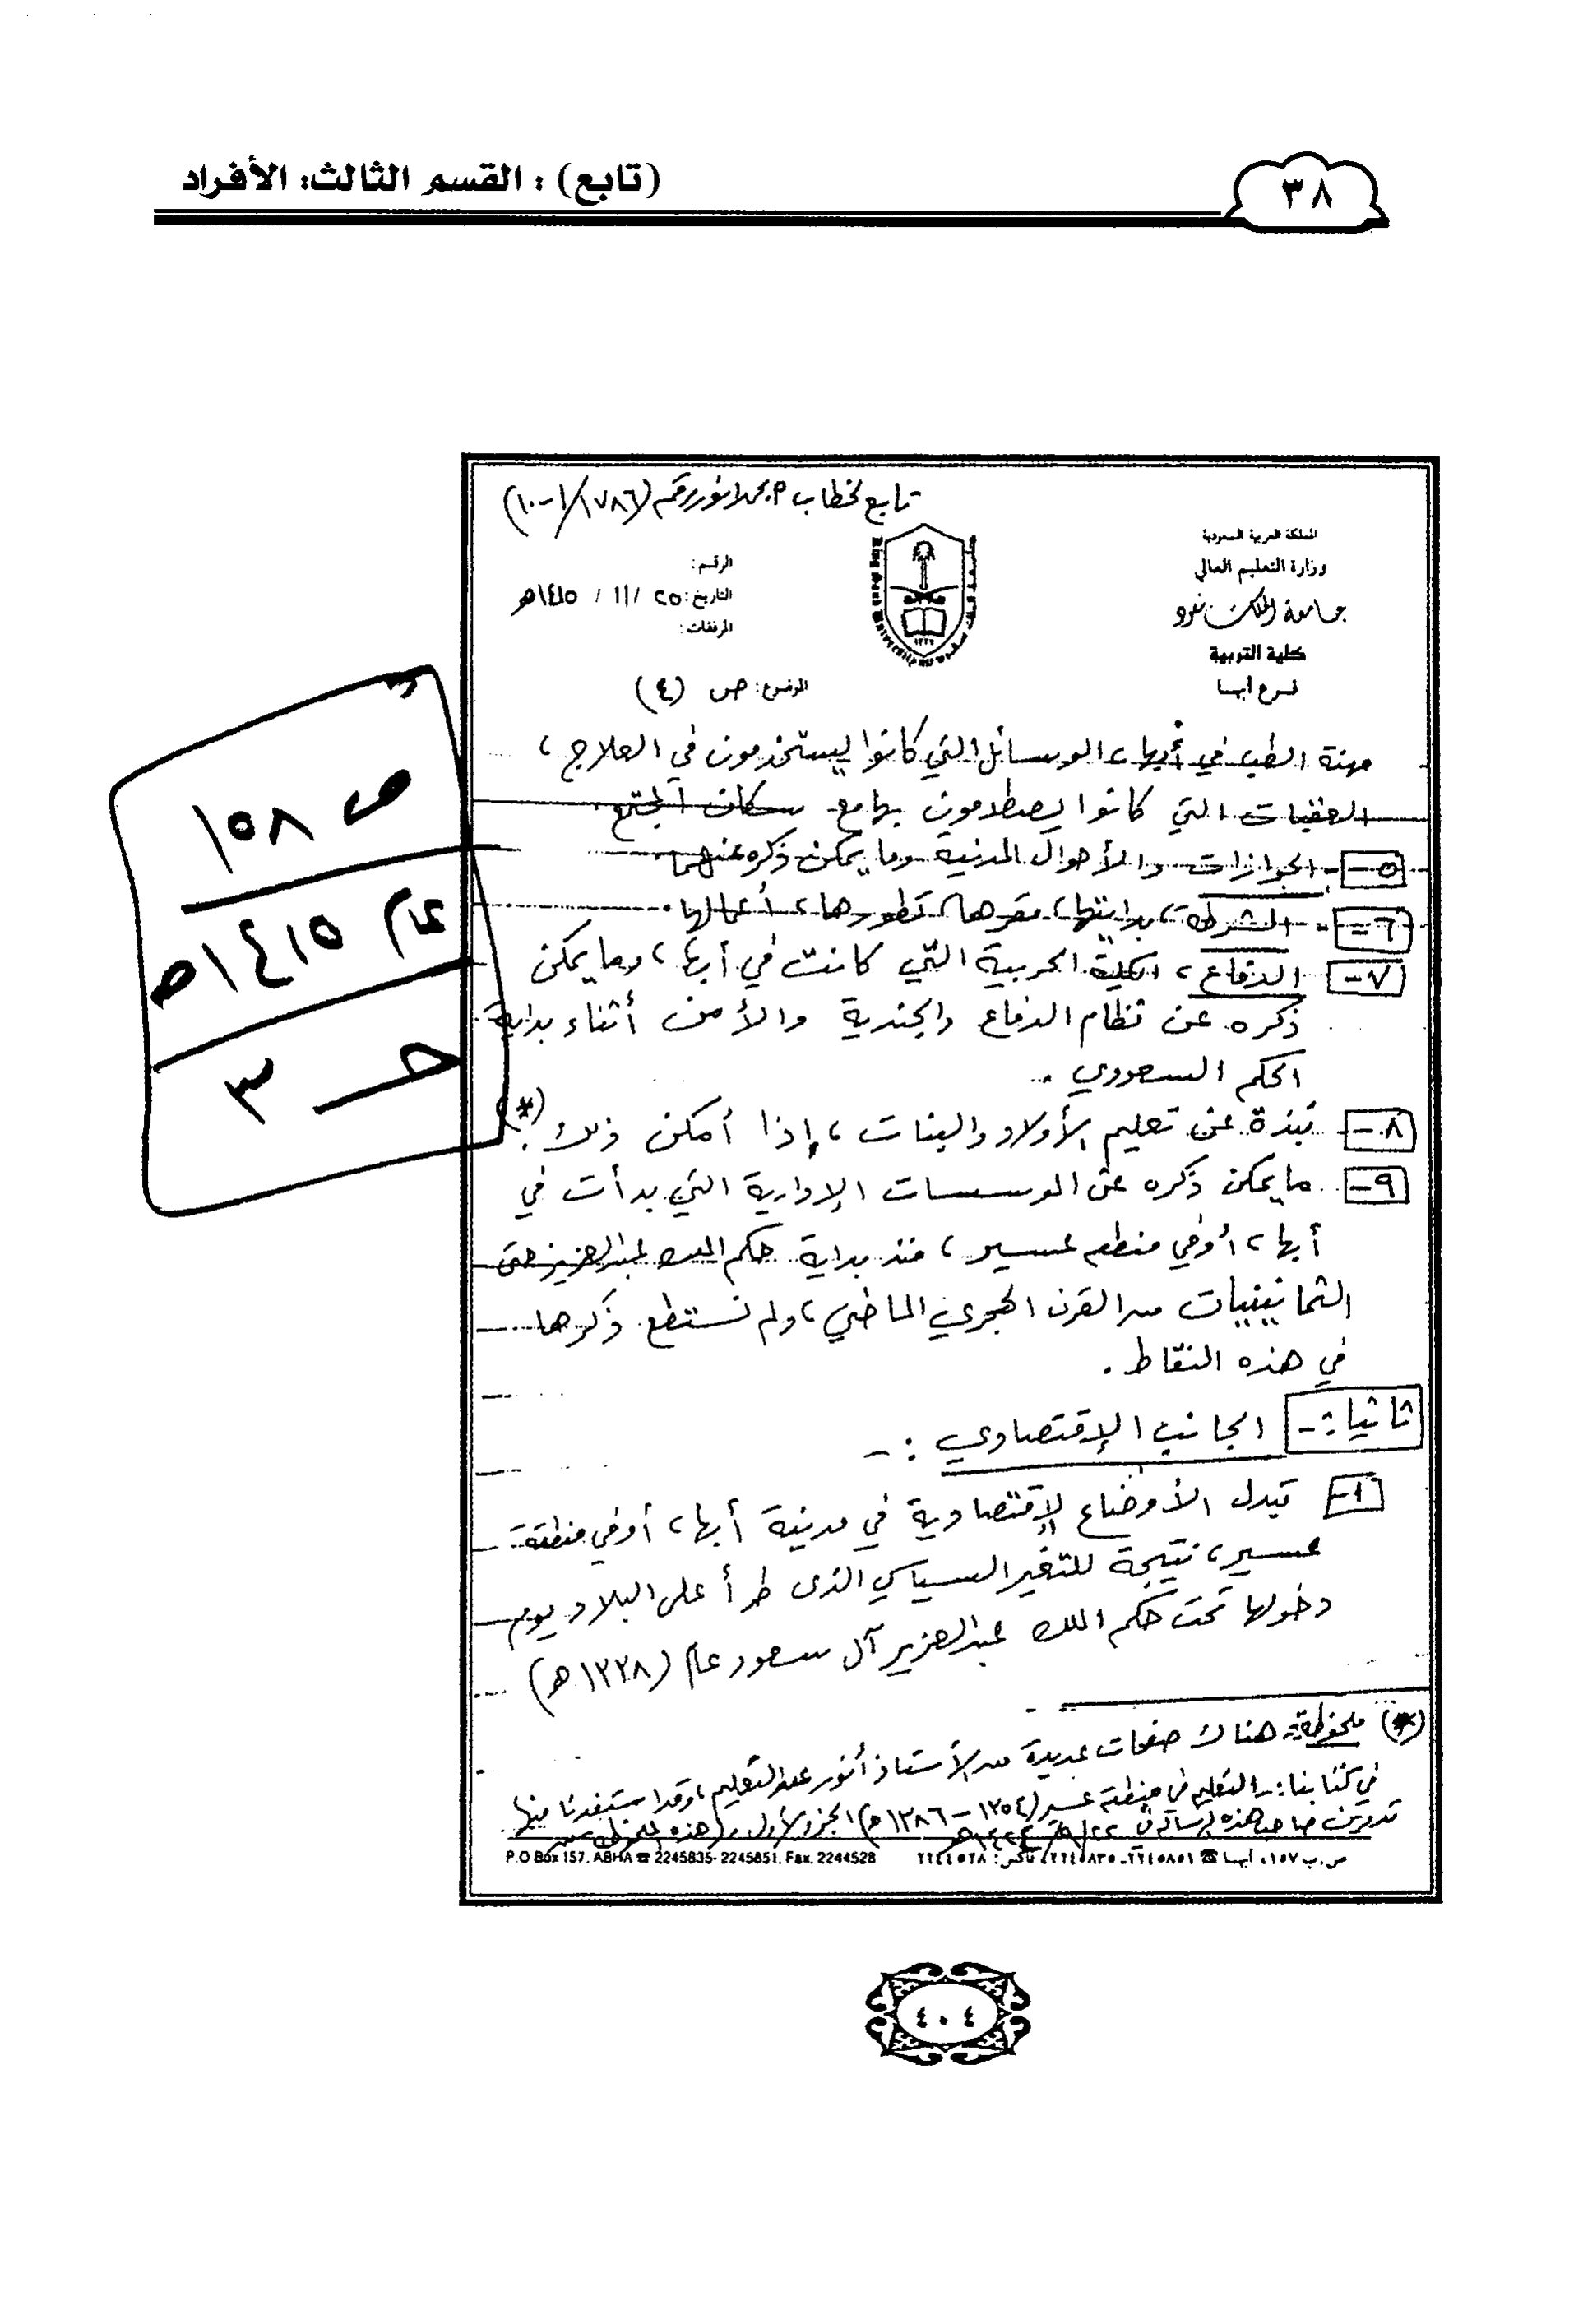 (تابع) : القسم الثالث: الأفراد
٣٨
تابع لخطاب محمد انور رقم (١٠-١/١٧٨٦)
المملكة العربية السعودية
وزارة التعليم العالي
جامعة الملك سعود
كلية التربية
فرع أبها
King Saud University
الرقم:
التاريخ: ٢٥ / ١١ / ١٤١٥هـ
المرفقات:
الموضوع: ص (٤)
مهنة الطب في أبها، الوسائل التي كانوا يستخدمون في العلاج،
العقبات التي كانوا يصطدمون بها مع سكان المجتمع.
٥- الجوازات والأحوال المدنية وما يمكن ذكره عنهما.
٦- الشرطة، بدايتها، مقرها، تطورها، أعمالها.
٧- الدفاع، الكلية الحربية التي كانت في أبها، وما يمكن
ذكره عن نظام الدفاع والجندية والأمن أثناء بداية
الحكم السعودي ..
٨- نبذة عن تعليم الأولاد والبنات، إذا أمكن ذلك. (*)
٩- ما يمكن ذكره عن الموسسات الإدارية التي بدأت في
أبها، أو في منطقة عسير، منذ بداية حكم الملك عبدالعزيز حتى
الثمانينيات من القرن الهجري الماضي، ولم نستطع ذكرها
في هذه النقاط.
ثانيا:- الجانب الإقتصادي :-
١- تبدل الأوضاع الإقتصادية في مدينة أبها، أو في منطقة
عسير، نتيجة للتغير السياسي الذى طرأ على البلاد يوم
دخولها تحت حكم الملك عبدالعزيز آل سعود عام (١٣٣٨هـ)
(*) ملحوظة: هناك صفحات عديدة من الأستاذ أنور عن التعليم، وقد استفدنا منها
في كتابنا:- التعليم في منطقة عسير (١٣٥٤-١٣٨٦هـ) الجزء الأول، (هذه الملحوظة من
تدوين صاحب هذه الرسالة في ٢٢/٩/١٤٢٤هـ
P.O Box 157, ABHA ☎ 2245835- 2245851, Fax. 2244528
ص.ب ١٥٧، أبها ☎ ٢٢٤٥٨٥١-٢٢٤٥٨٣٥، فاكس: ٢٢٤٤٥٢٨
ص ١٥٨
عام ١٤١٥هـ
حـ ٣
٤٠٤